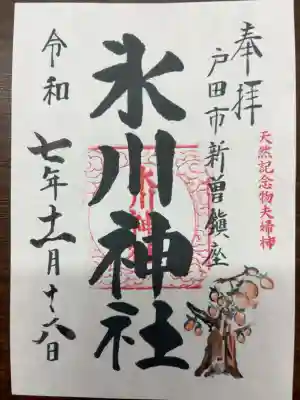 奉拝
戸田市新曽鎮座
天然記念物夫婦柿
氷川神社
氷川神社
令和七年十一月十六日